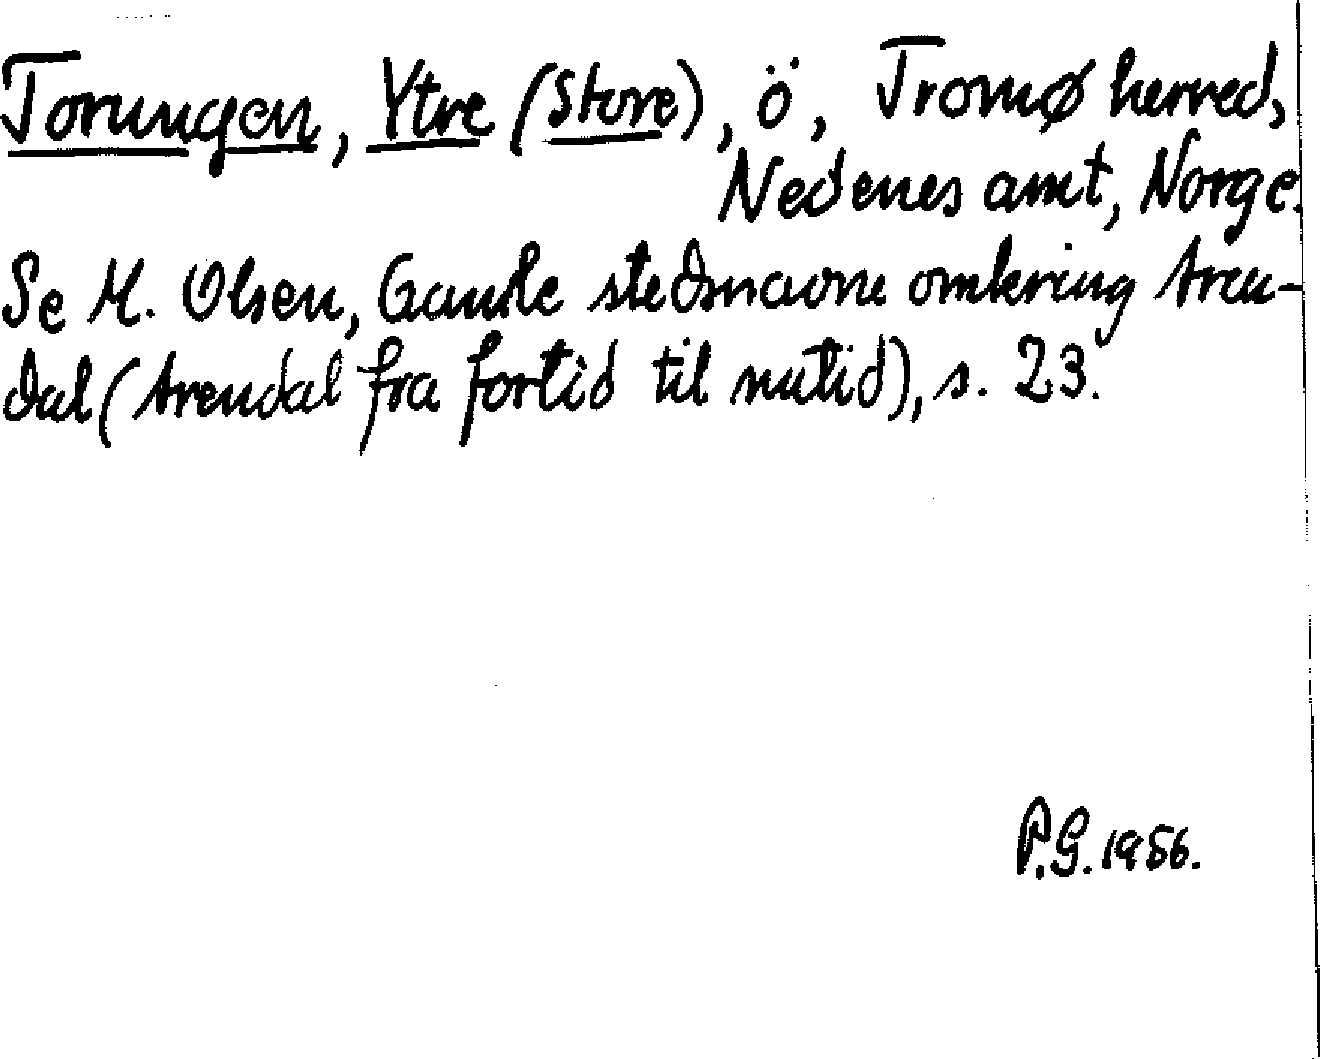 Torungen, Ytre (Store), ö, Tromø herred,
Nedenes amt, Norge.
Se M. Olsen, Gamle stedsnavne omkring Aren-
dal (Arendal fra fortid til nutid), s. 23.
P.G. 1956.